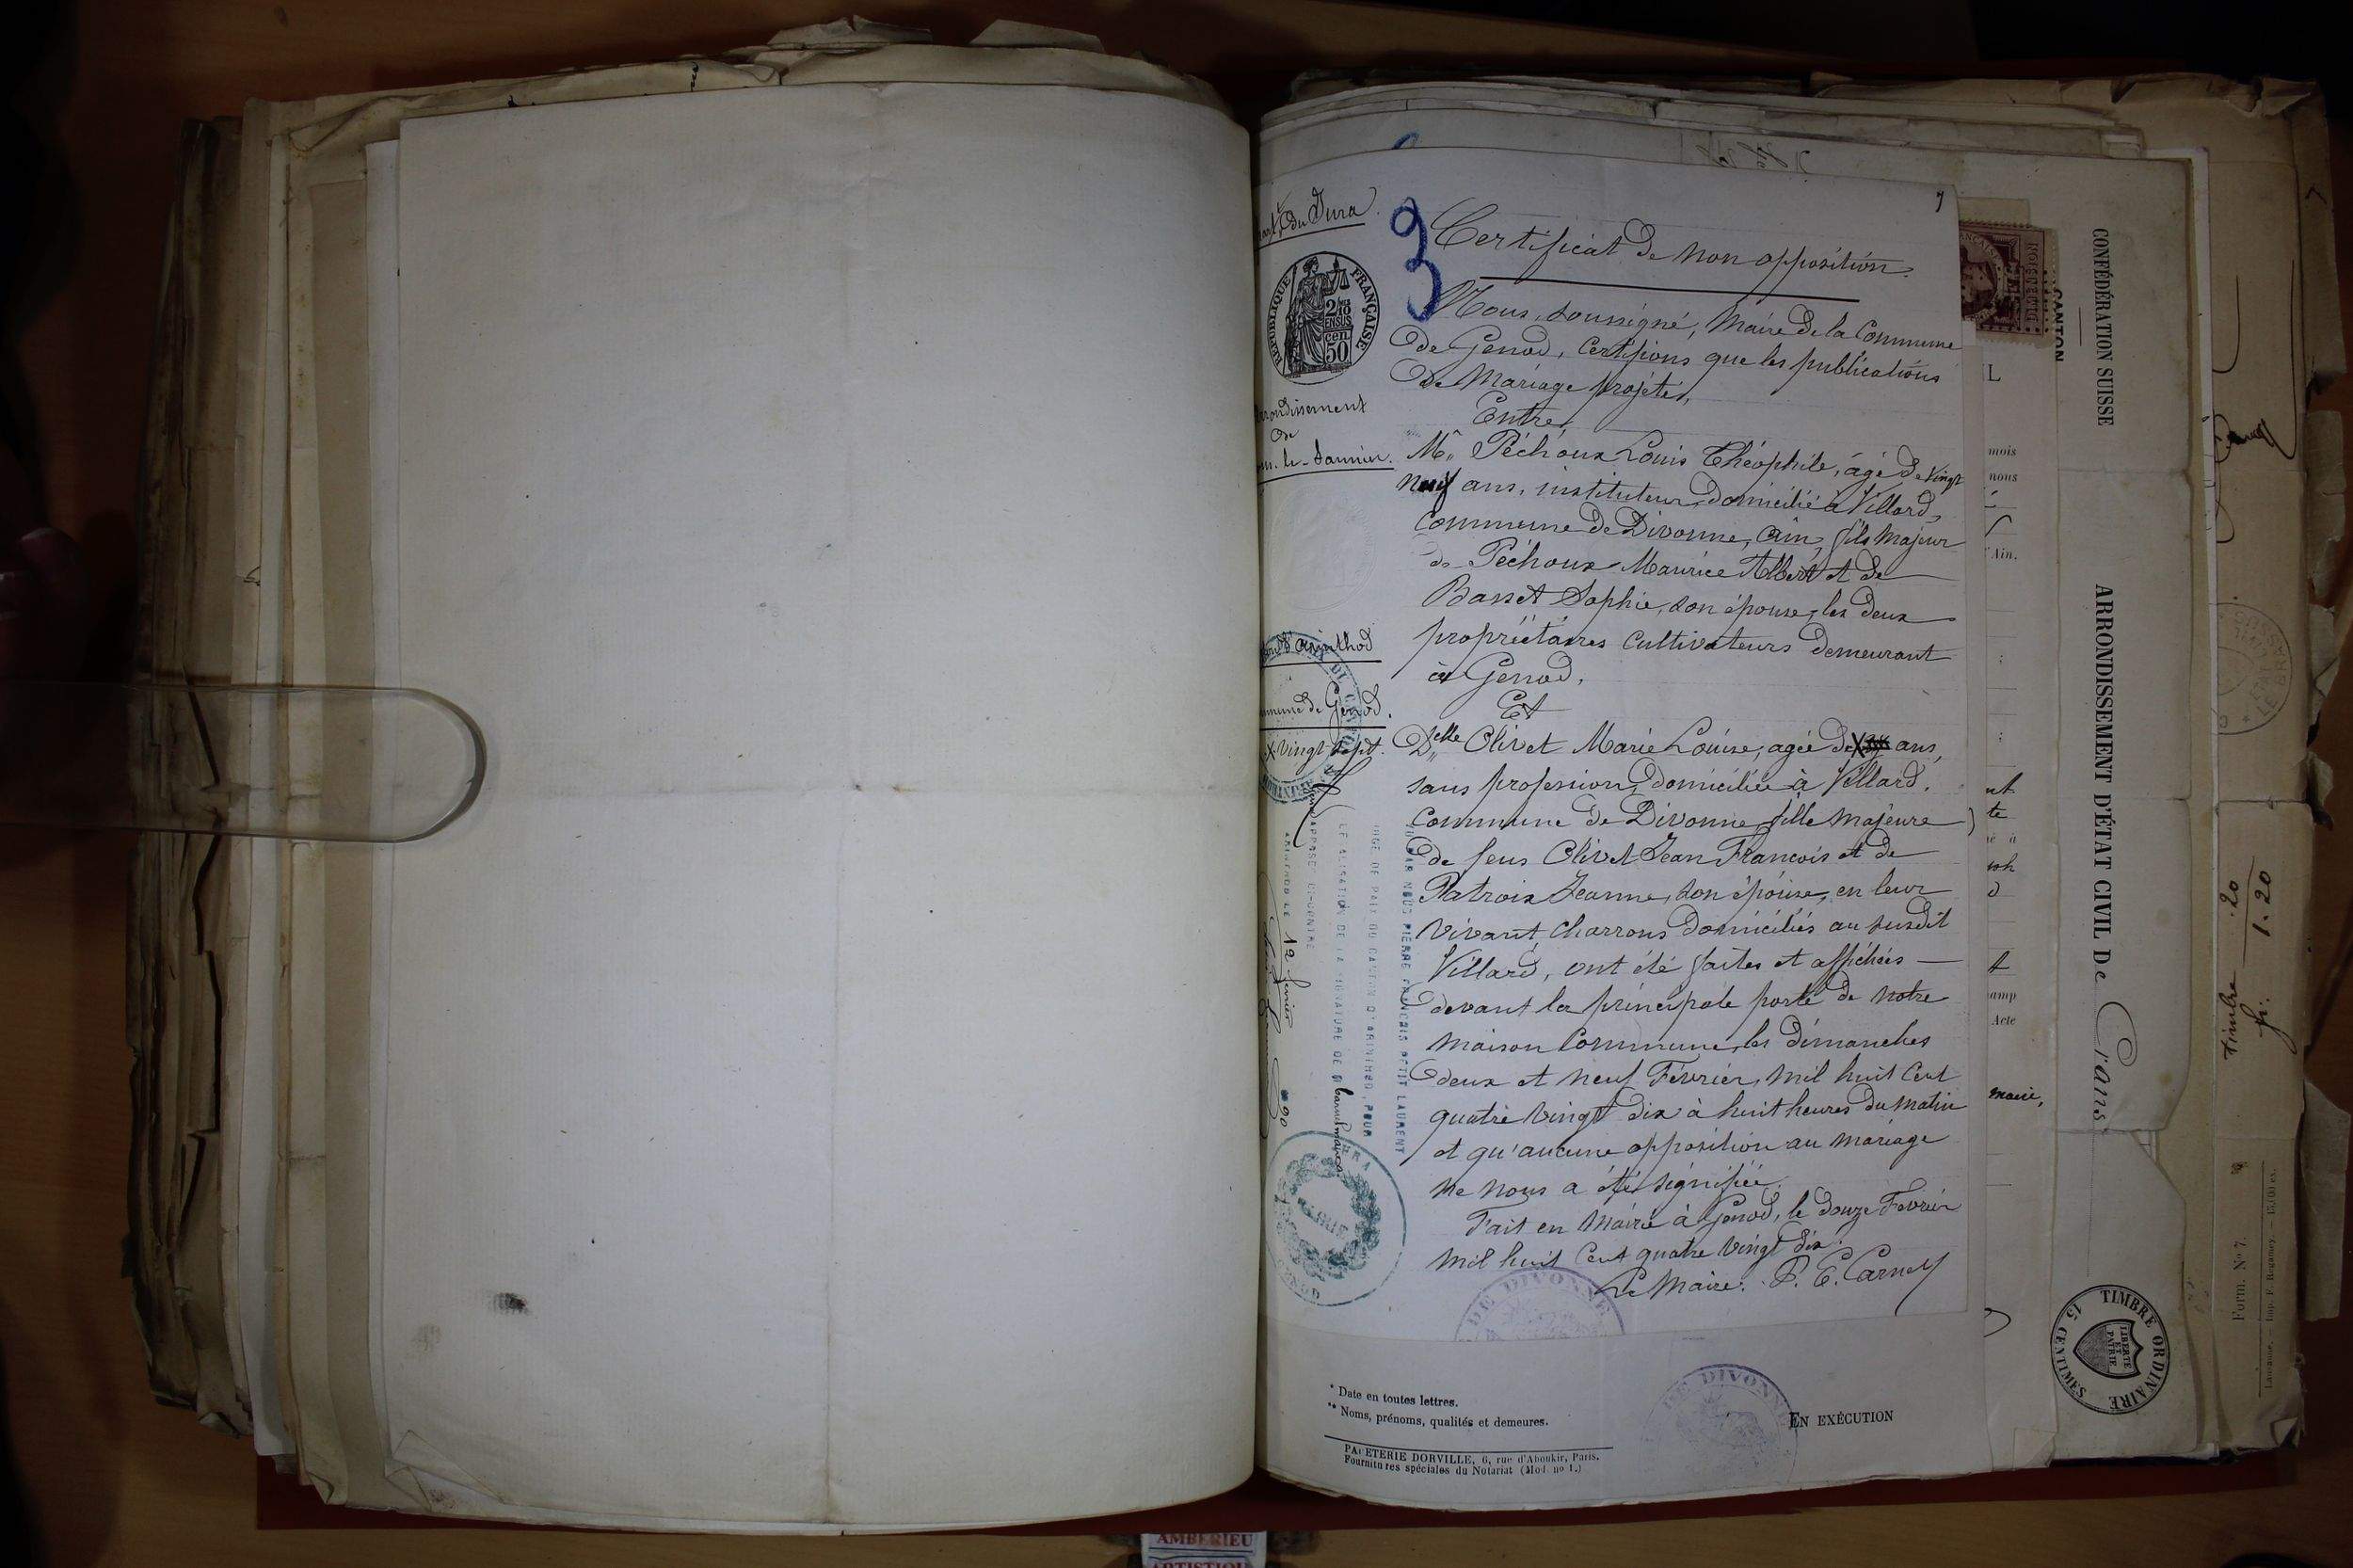 du Jura
3
Certificat de non opposition.
RÉPUBLIQUE FRANÇAISE
2/10 EN SUS
cen.
50
Nous, soussigné, Maire de la Commune
de Genod, Certifions que les publications
de Mariage projeté,
Entre,
arrondissement
de
le-Saunier.
Mr. Péchoux Louis Théophile, âgé de vingt
neuf ans, instituteur, domicilié à Villard,
Commune de Divonne, Ain, fils majeur
de Péchoux Maurice Albert et de
Basset Sophie, son épouse, les deux
propriétaires Cultivateurs demeurant
à Genod,
d'Arinthod
Commune de Genod.
Et
X Vingt-sept.
Delle Olivet Marie Louise, agée de X ans,
sans profession, domiciliée à Villard,
Commune de Divonne, fille majeure
de feus Olivet Jean François et de
Patroix Jeanne, son épouse, en leur
vivant, charrons domiciliés au susdit
Villard, ont été faites et affichées —
devant la principale porte de notre
maison Commune, les dimanches
deux et neuf Février, mil huit Cent
quatre vingt dix à huit heures du matin
et qu'aucune opposition au mariage
ne nous a été signifiée.
Fait en Mairie à Genod, le douze Février
mil huit Cent quatre vingt dix.
Le Maire: P. E. Carney
VU PAR NOUS PIERRE FRANÇOIS PETIT LAURENT
JUGE DE PAIX DU CANTON D'ARINTHOD, POUR
LÉGALISATION DE LA SIGNATURE DE M
APPOSÉE CI-CONTRE
ARINTHOD LE 12 février 90
JURA
MAIRIE
GENOD
DE DIVONNE
* Date en toutes lettres.
** Noms, prénoms, qualités et demeures.
DE DIVONNE
EN EXÉCUTION
PAPETERIE DORVILLE, 6, rue d'Aboukir, Paris.
Fournitures spéciales du Notariat (Mod. no 1.)
CANTON
L
mois
nous
l'Ain.
te
amp
Acte
maire,
CONFÉDÉRATION SUISSE
ARRONDISSEMENT D'ÉTAT CIVIL De Crans
TIMBRE ORDINAIRE
15 CENTIMES
LIBERTÉ
ET
PATRIE
Timbre .20
fr. 1.20
Form. No 7.
Lausanne. — Imp. F. Regamey. — 15,000 ex.
AMBERIEU
ARTISTIQU